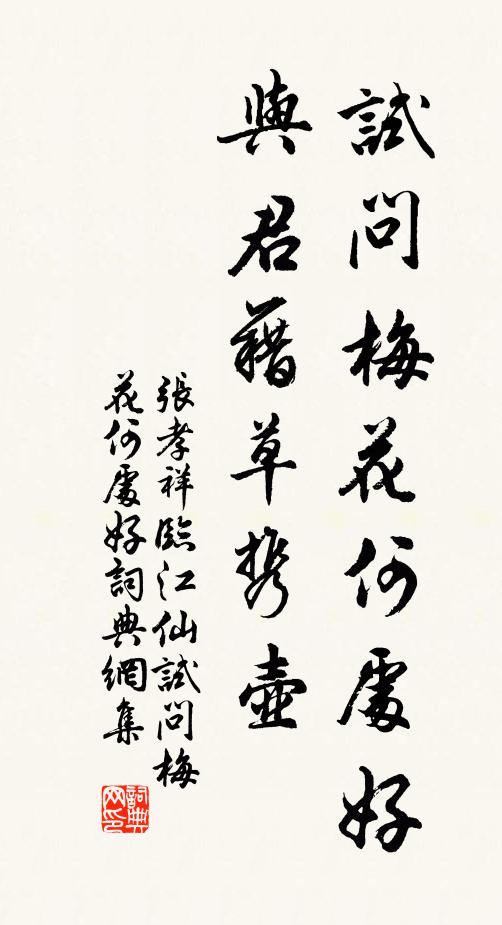 試問梅花何處好
與君藉草携壺
張孝祥臨江仙試問梅
花何處好詞典網集
詞典
网印